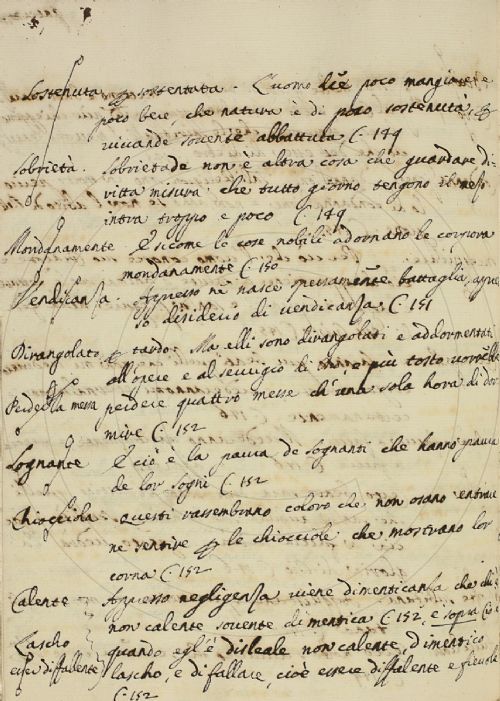 Sostenuta p sostentata. L'uomo che poco mangia e
poco bee, che natura è di poco sostenuta, &
vivande sovente abbattuta C. 149
Sobrietà. Sobrietade non è altra cosa che guardare di-
ritta misura che tutto giorno tengono il mezo
intra troppo e poco C. 149
Mondanamente E sicome le cose nobili adornano le corpora
mondanamente C. 150
Vendicanza. Appresso ne nasce spessamente battaglia, apres-
so disiderio di vendicanza C. 151
Dirangolato p tardo. Ma elli sono dirangolati e addormentati
all'opere e al servigio di e più tosto vorrebbe
Perder la messa perdere quattro messe ch'una sola hora di dor
mire C. 152
Sognante E ciò è la paura de sognanti che hanno paura
de lor sogni C. 152
Chiocciola. Questi rassembrano coloro che non osano entrare
ne sentire p le chiocciole che mostrano lor
corna C. 152
Calente Appresso negligenza viene dimenticanza che chi
non calente sovente dimentica C. 152, e sopra
Lascho quando egl'è disleale non calente, dimentico
esser diffalente lascho, e di fallace, cioè essere diffalente e fievole
C. 152